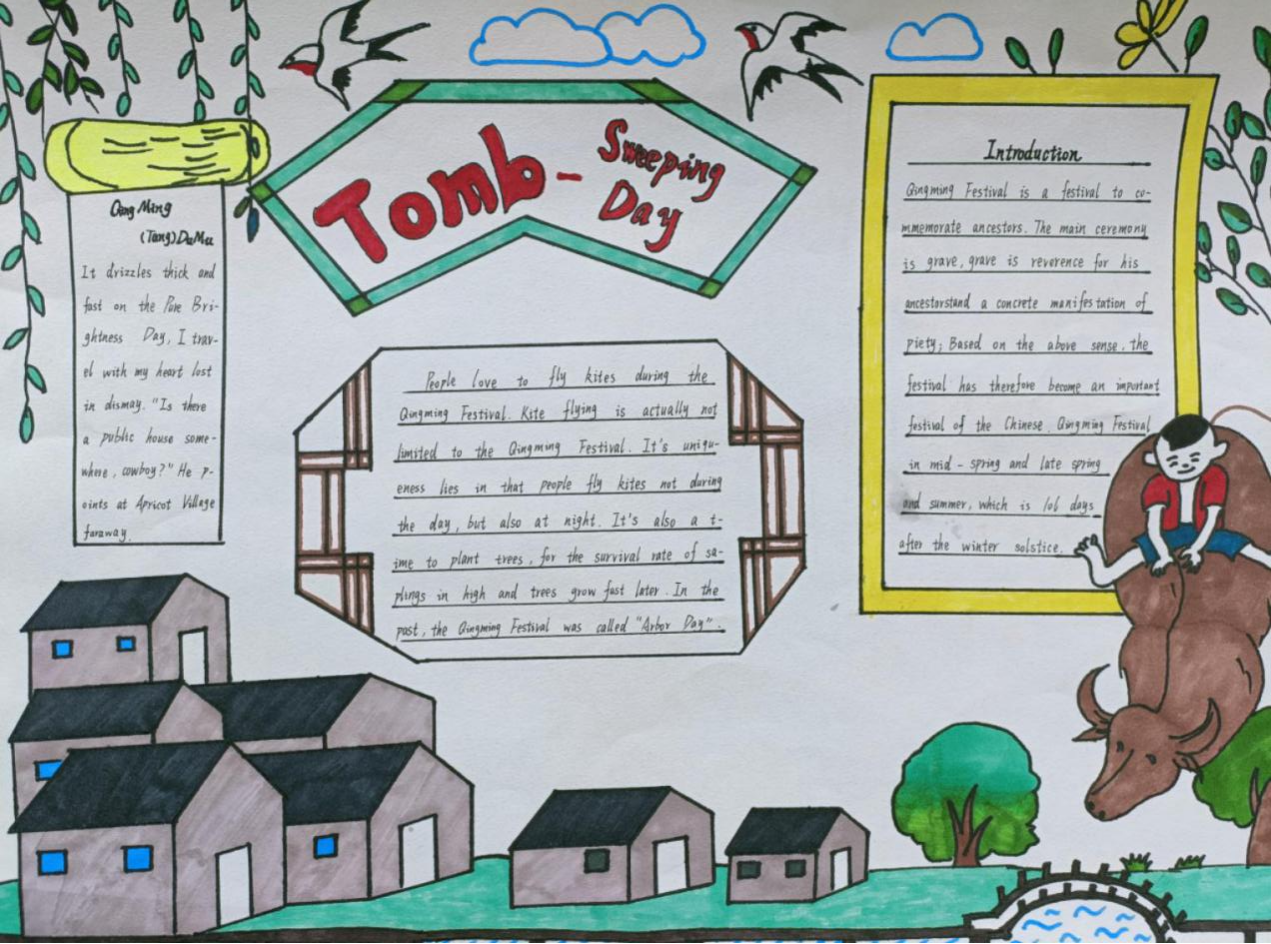 Tomb-
Sweeping
Day
Qing Ming
(Tang) Du Mu
It drizzles thick and
fast on the Pure Bri-
ghtness Day, I trav-
el with my heart lost
in dismay. "Is there
a public house some-
where, cowboy?" He p-
oints at Apricot Village
faraway.
People love to fly kites during the
Qingming Festival. Kite flying is actually not
limited to the Qingming Festival. It's uniqu-
eness lies in that people fly kites not during
the day, but also at night. It's also a t-
ime to plant trees, for the survival rate of sa-
plings in high and trees grow fast later. In the
past, the Qingming Festival was called "Arbor Day".
Introduction
Qingming Festival is a festival to co-
mmemorate ancestors. The main ceremony
is grave, grave is reverence for his
ancestorstand a concrete manifestation of
piety; Based on the above sense, the
festival has therefore become an important
festival of the Chinese. Qingming Festival
in mid-spring and late spring
and summer, which is 101 days
after the winter solstice.